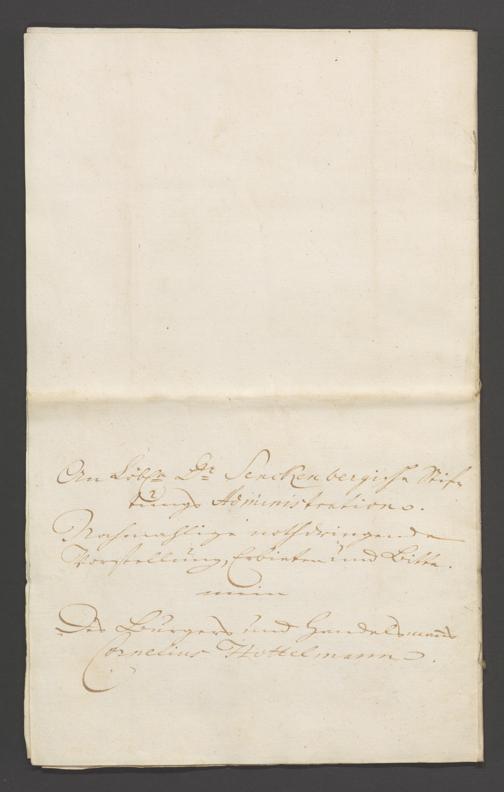 An Löbl. Dr Senckenbergische Stif
tungs Administration.
Nochmahlige nothdringende
Vorstellung, Erbieten und Bitte.
mein
Des Burgers und Handelsmanns
Cornelius Hottelmann.